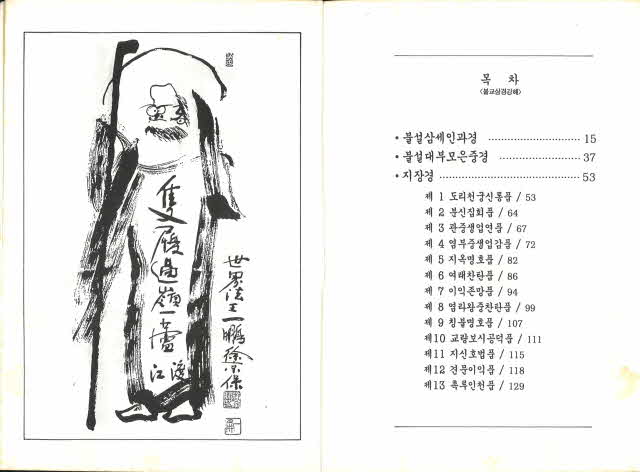 隻
履
過
嶺
一
蘆
江渡
世界法王一鵬徐京保
목 차
〈불교삼경강해〉
• 불설삼세인과경 ………………………… 15
• 불설대부모은중경 ……………………… 37
• 지장경 …………………………………… 53
제 1 도리천궁신통품 / 53
제 2 분신집회품 / 64
제 3 관중생업연품 / 67
제 4 염부중생업감품 / 72
제 5 지옥명호품 / 82
제 6 여래찬탄품 / 86
제 7 이익존망품 / 94
제 8 염라왕중찬탄품 / 99
제 9 칭불명호품 / 107
제10 교량보시공덕품 / 111
제11 지신호법품 / 115
제12 견문이익품 / 118
제13 촉루인천품 / 129